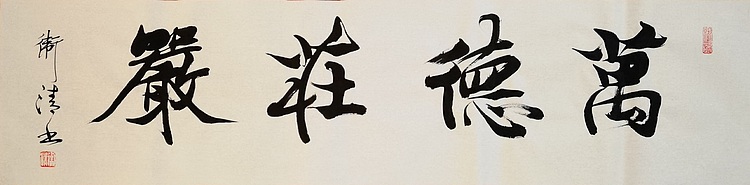 萬德莊嚴
衛清書